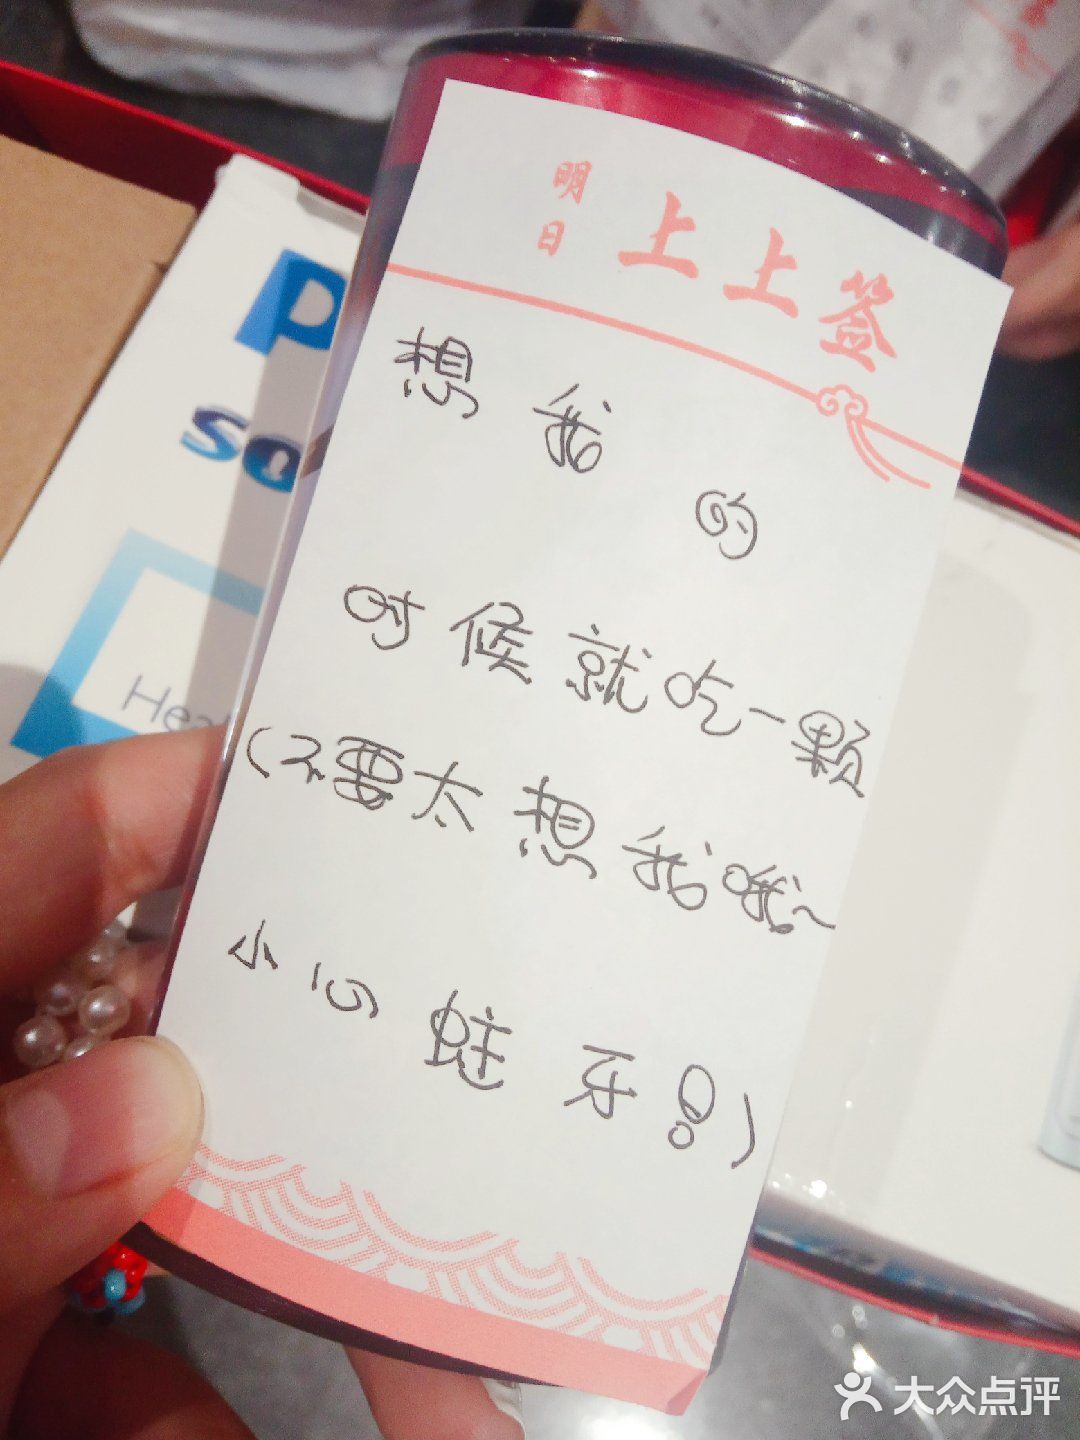 明日 上上签
想我的
时候就吃一颗
(不要太想我哦~
小心蛀牙!)
P
so
Hea
大众点评